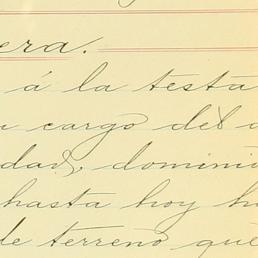 era.
á la testa
cargo del
dad, domini
hasta hoy h
de terreno que